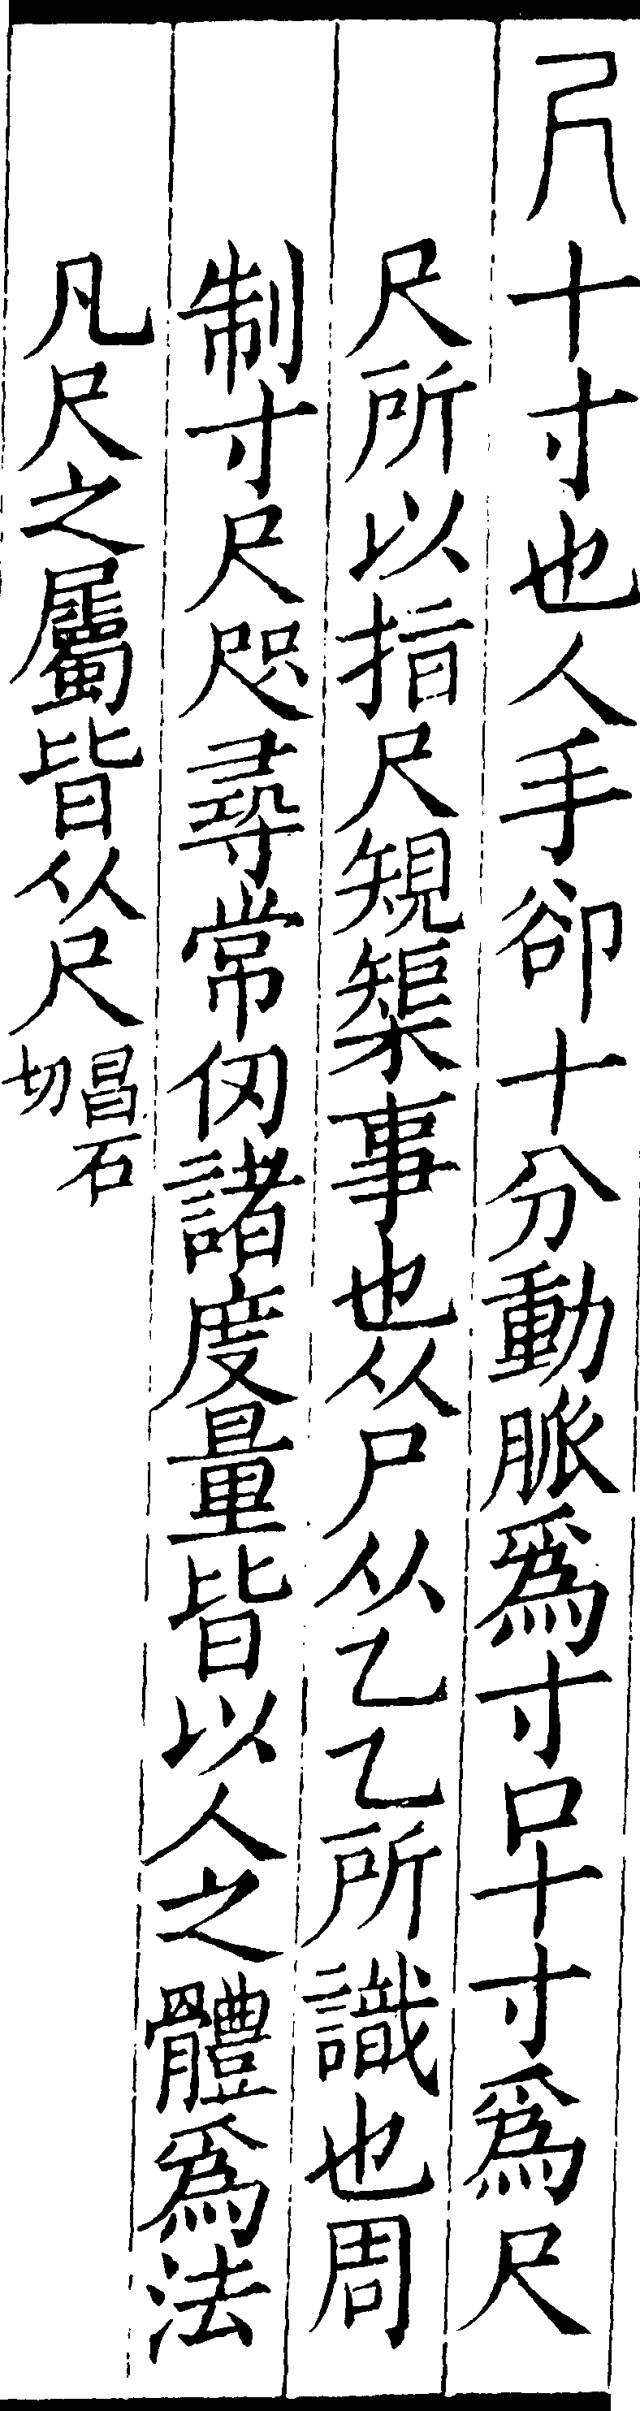 尺十寸也人手卻十分動脈爲寸口十寸爲尺
尺所以指尺䂓榘事也从尸从乙乙所識也周
制寸尺咫尋常仞諸度量皆以人之體爲法
凡尺之屬皆从尺昌石切